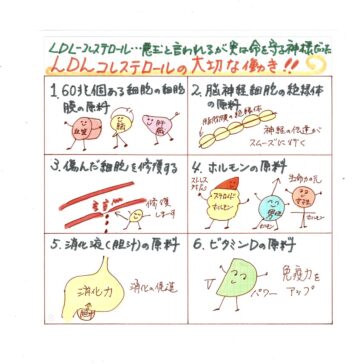 LDL-コレステロール…悪玉と言われるが実は命を守る神様だった
LDLコレステロールの大切な働き!!
1.60兆個ある細胞の細胞
膜の原料
血管
脳
肝臓
2.脳神経細胞の絶縁体
の原料
神経の伝達が
スムーズに行く
3.傷んだ細胞を修復する
修復
します
4.ホルモンの原料
ストレス
ステロイド
ホルモン
生命力の元
男性
ホルモン
女性
ホルモン
5.消化液(胆汁)の原料
消化力
胆汁
消化の促進
6.ビタミンDの原料
パワー
免疫力を
アップ